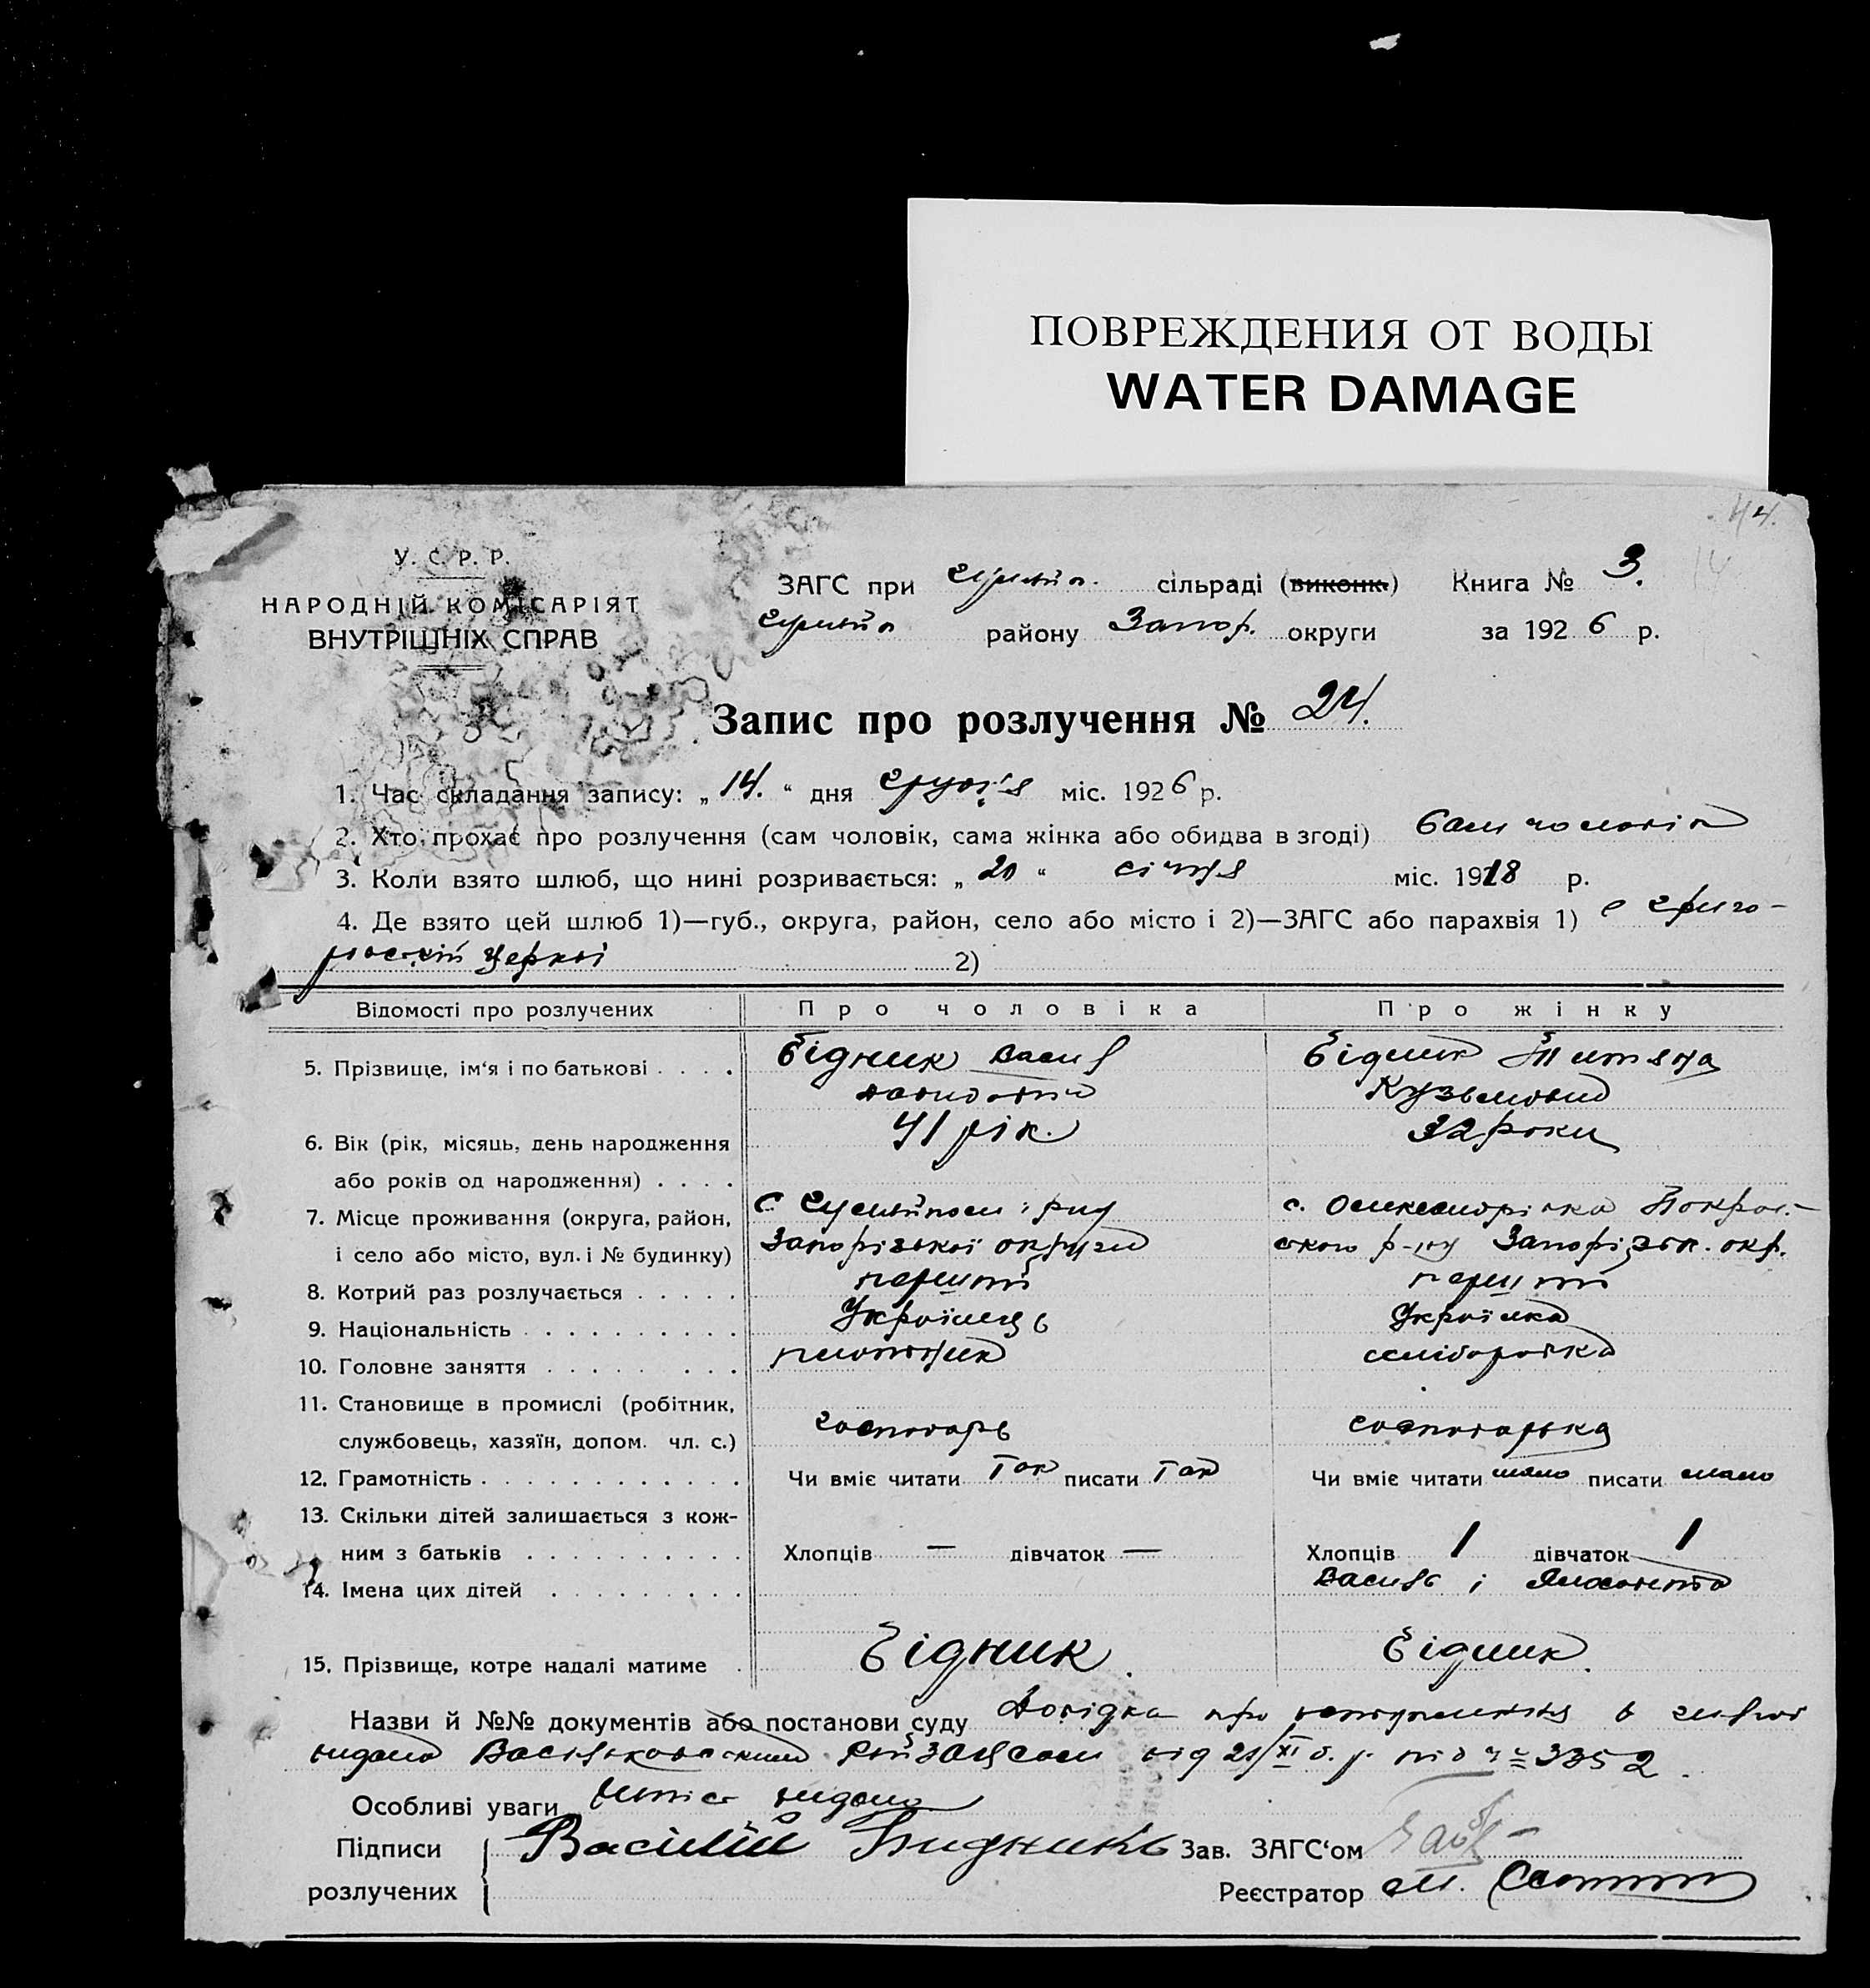 ПОВРЕЖДЕНИЯ ОТ ВОДЫ
WATER DAMAGE
44.
14
У. С. Р. Р.
НАРОДНІЙ КОМІСАРІЯТ
ВНУТРІШНІХ СПРАВ
ЗАГС при сільраді (виконк.) Книга № 3.
району Запор. округи за 1926 р.
Запис про розлучення № 24.
1. Час складання запису: „14.“ дня грудня міс. 1926 р.
2. Хто прохає про розлучення (сам чоловік, сама жінка або обидва в згоді) Сам чоловік
3. Коли взято шлюб, що нині розривається: „20“ січня міс. 1918 р.
4. Де взято цей шлюб 1)—губ., округа, район, село або місто і 2)—ЗАГС або парахвія 1) в Григо-
рівській церкві 2)
Відомості про розлучених Про чоловіка Про жінку
5. Прізвище, ім‘я і по батькові . . . . Бідник Василь Бідник Титяна
Давидович Кузьмовна
6. Вік (рік, місяць, день народження 41 рік. 32 роки
або років од народження) . . . .
7. Місце проживання (округа, район, с. Олександрівка Покров-
і село або місто, вул. і № будинку) Запорізької округи ського р-ну Запорізьк. окр.
8. Котрий раз розлучається . . . . . перший перший
9. Національність . . . . . . . . . . Українець Українка
10. Головне заняття . . . . . . . . плотник хліборобка
11. Становище в промислі (робітник,
службовець, хазяїн, допом. чл. с.) господарь господарька
12. Грамотність . . . . . . . . . . . . Чи вміє читати Так писати Так Чи вміє читати мало писати мало
13. Скільки дітей залишається з кож-
ним з батьків . . . . . . . . . . Хлопців — дівчаток — Хлопців 1 дівчаток 1
14. Імена цих дітей . . . . . . . . . Василь і
15. Прізвище, котре надалі матиме . Бідник. Бідник.
Назви й №№ документів або постанови суду Довідка про в шлюб
видана Васильковським від 21/XI б. р. під № 3352.
Особливі уваги видано
Підписи Василий Бидникъ Зав. ЗАГС‘ом
розлучених Реєстратор М.